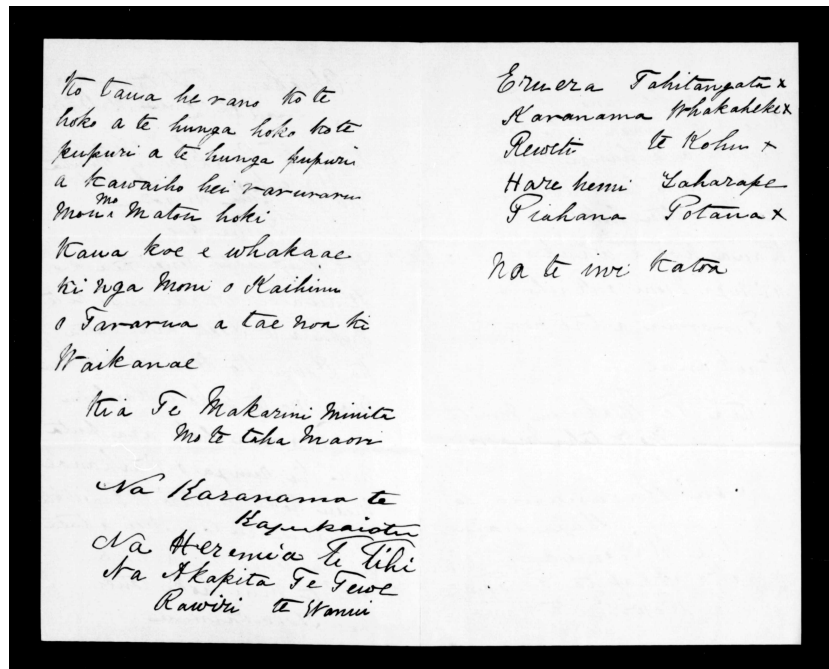 Ko taua he rano ko te
hoko a te hunga hoko ko te
pupuri a te hunga pupuri
a kawaiho hei raruraru
moni mo matou hoki
Kaua koe e whakaae
ki nga moni o Kaihinu
o Tararua a tae noa ki
Waikanae
Kia Te Makarini Minita
Mo te taha Maori
Na Karanama te
Kapukaiotu
Na Heremia Te Tihi
Na Akapita Te Tewe
Rawiri te Wanui
Eruera Tahitangata x
Karanama Whakaheke x
Reweti te Kohu x
Hare hemi Taharape
Piahana Potana x
Na te iwi katoa